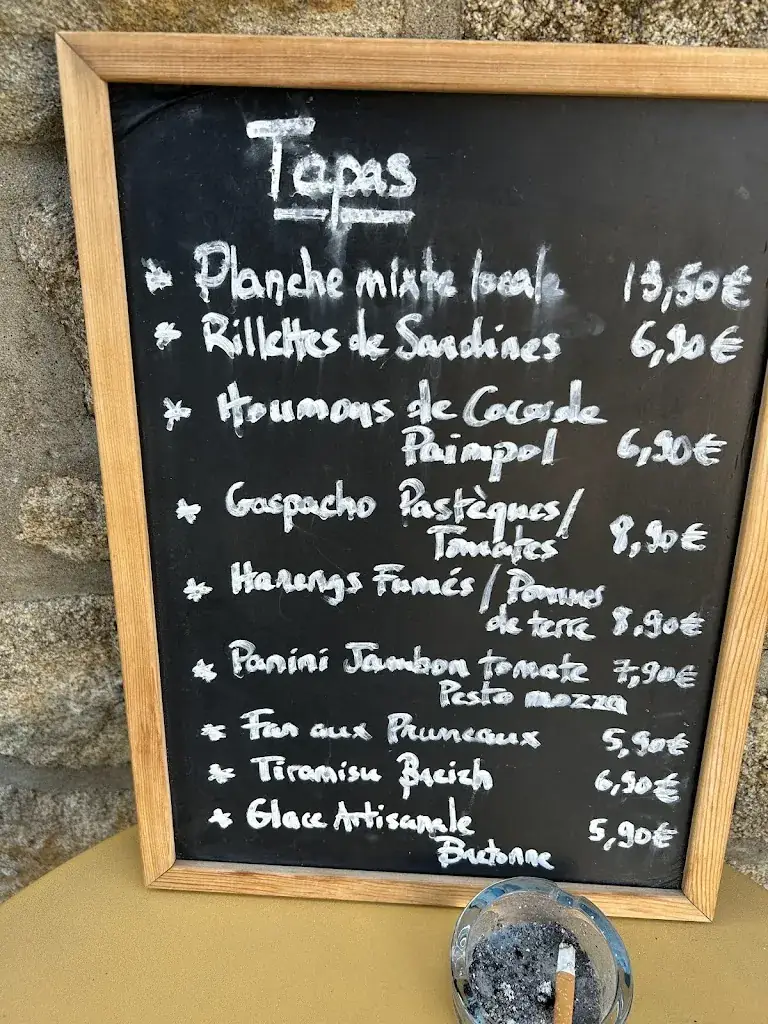 Tapas
* Planche mixte locale 19,50€
* Rillettes de Sardines 6,90€
* Houmous de Cocos de
Paimpol 6,90€
* Gaspacho Pastèques/
Tomates 8,90€
* Harengs Fumés / Pommes
de terre 8,90€
* Panini Jambon tomate 7,90€
Pesto mozza
* Far aux Pruneaux 5,90€
* Tiramisu Breizh 6,90€
* Glace Artisanale 5,90€
Bretonne